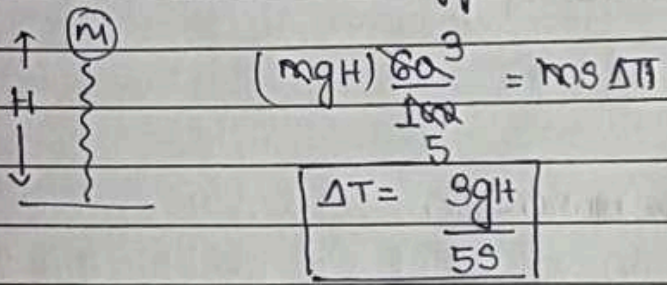 m
H
(mgH) 60 3 / 100 5 = ms ΔT
ΔT = 3gH / 5s